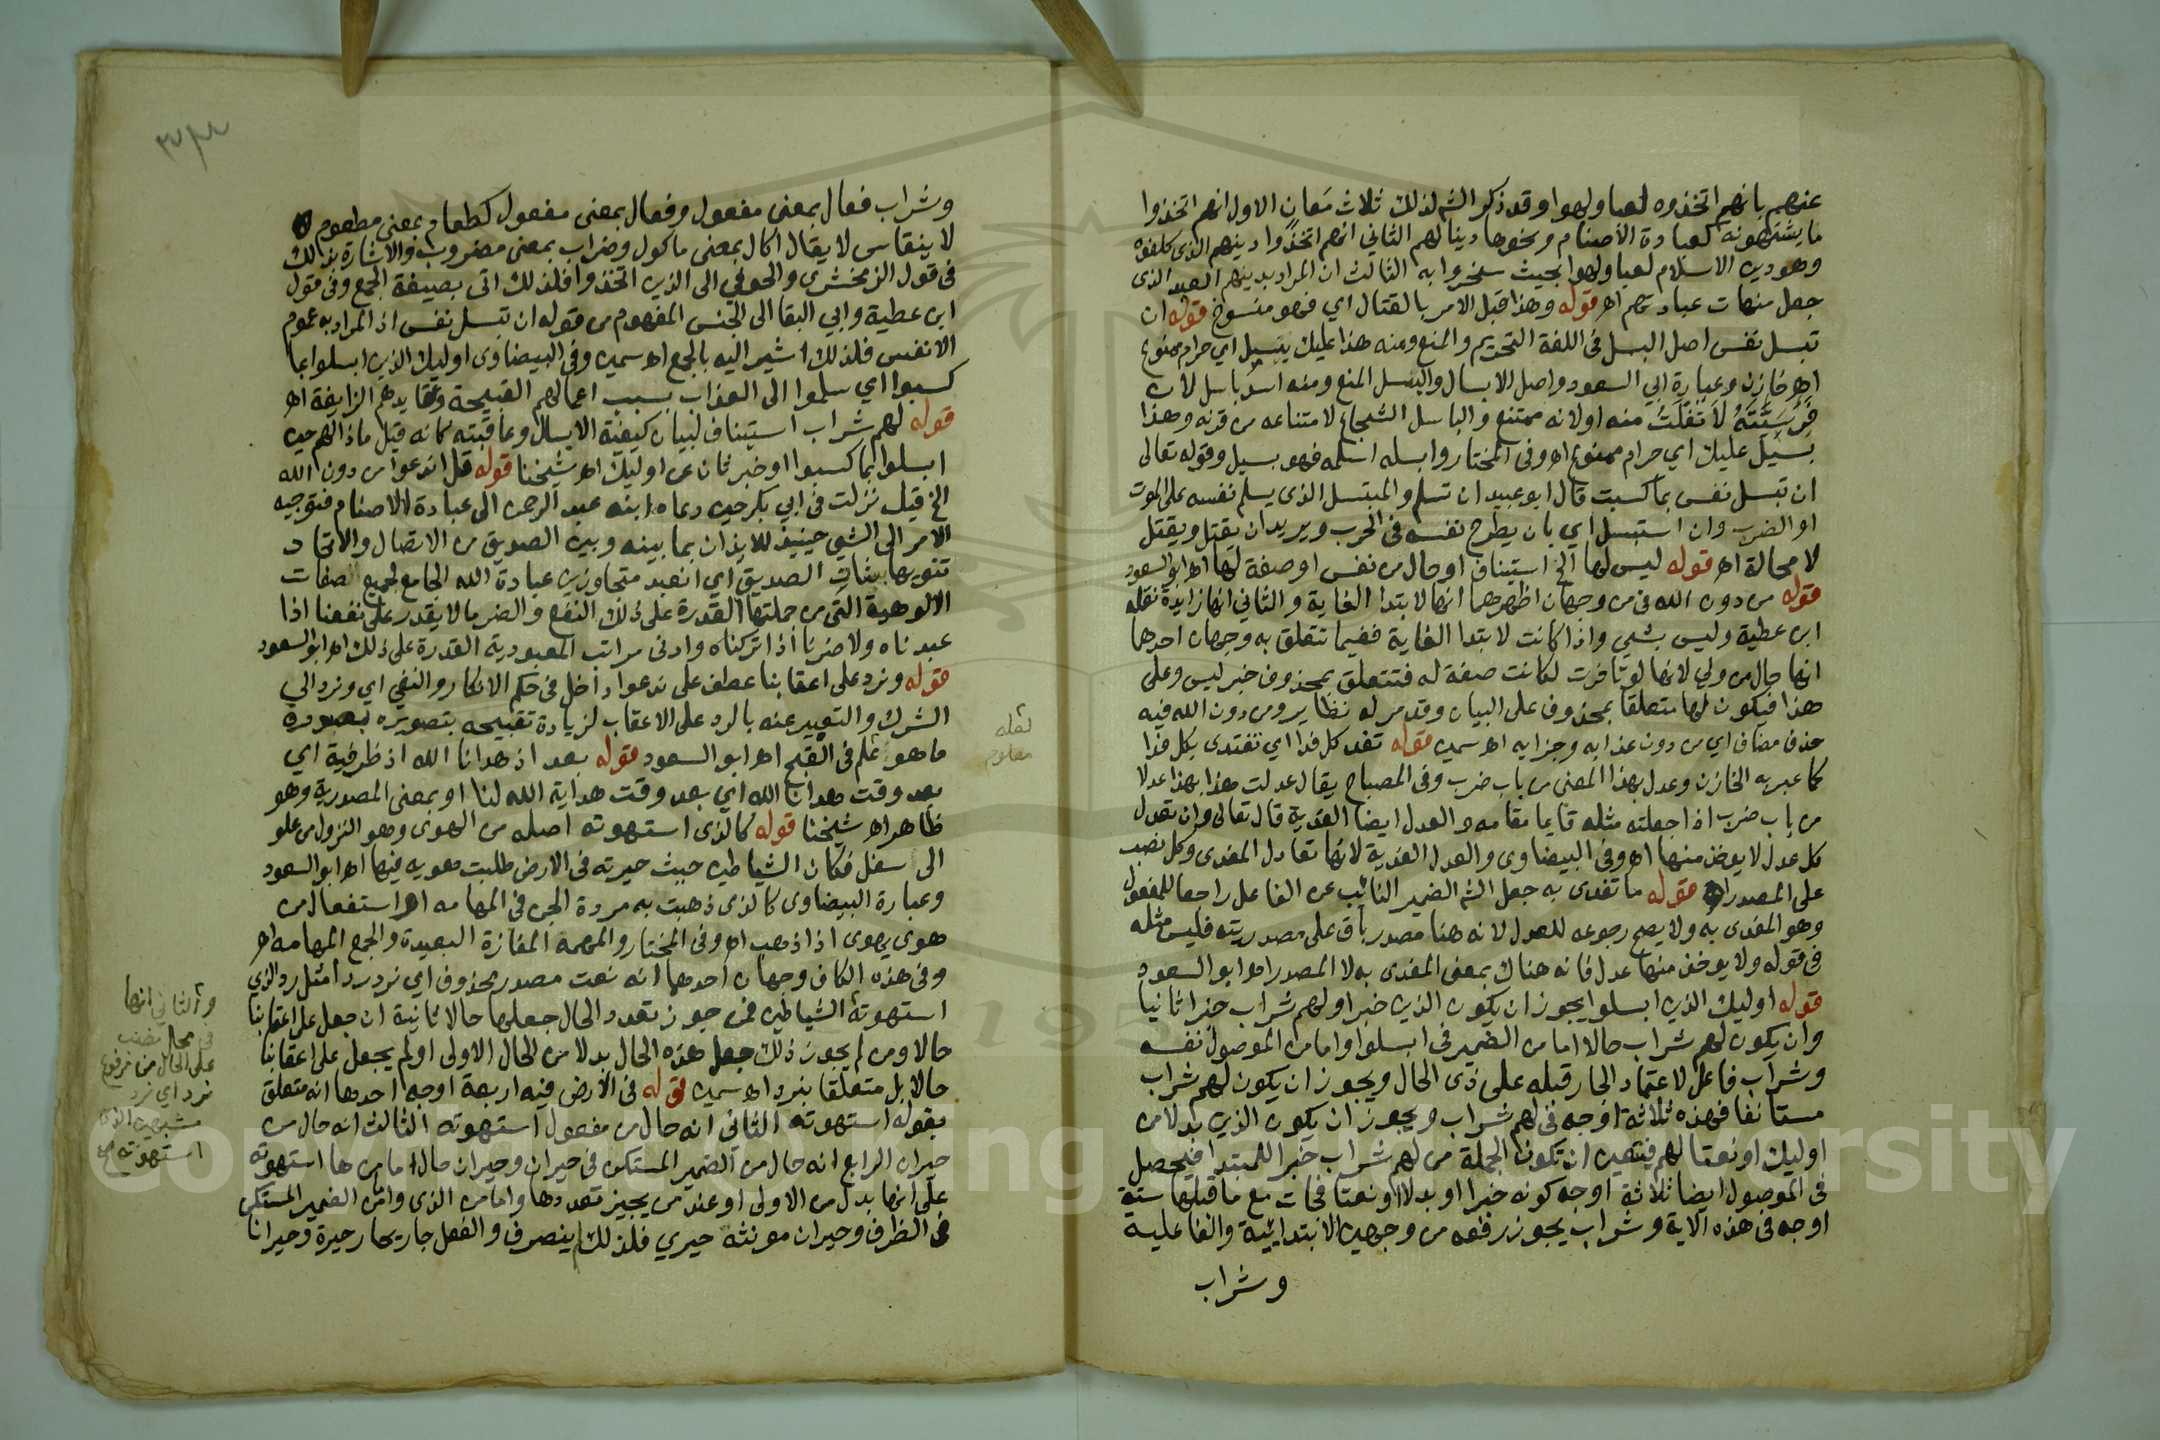 عنهم بانهم اتخذوه لعبا ولهوا وقد ذكر الشه لذلك ثلاث معان الاول انهم اتخذوا
ما يشتهونه كعبادة الأصنام ونحوها دينا لهم الثاني انهم اتخذوا دينهم الذى كلفوه
وهو دين الاسلام لعبا ولهوا بحيث سخروا به الثالث ان المراد بدينهم العيد الذى
جعل ميقات عبادتهم اه قوله وهذا قبل الامر بالقتال اي فهو منسوخ قوله ان
تبسل نفس اصل البسل فى اللغة التحريم والمنع ومنه هذا عليك بسل اي حرام ممنوع
اه خازن وعبارة ابي السعود واصل الابسال والبسل المنع ومنه اسد باسل لان
فريسته لا تفلت منه او لانه ممتنع والباسل الشجاع لامتناعه من قرنه وهذا
بسيل عليك اي حرام ممنوع اه وفى المختار وابسله اسلمه فهو بسيل وقوله تعالى
ان تبسل نفس بما كسبت قال ابو عبيد ان تسلم والمبتسل الذى يسلم نفسه على الموت
او الضرب وان استبسل اي بان يطرح نفسه فى الحرب ويريد ان يقتل ويقتل
لا محالة اه قوله ليس لها الخ استيناف او حال من نفس او صفة لها اه ابو السعود
قوله من دون الله فى من وجهان اظهرهما انها لابتدا الغاية والثاني انها زايدة نقله
ابن عطية وليس بشي واذا كانت لابتدا الغاية ففيما تتعلق به وجهان احدهما
انها حال من ولي لانها لو تاخرت لكانت صفة له فتتعلق بمحذوف خبر ليس وعلى
هذا فيكون لها متعلقا بمحذوف على البيان وقد مر له نظاير ومن دون الله فيه
حذف مضاف اي من دون عذابه وجزايه اه سمين قوله تفد كل فدا اي تفتدى بكل فدا
كما عبر به الخازن وعدل بهذا المعنى من باب ضرب وفى المصباح يقال عدلت هذا بهذا عدلا
من باب ضرب اذا جعلته مثله قايما مقامه والعدل ايضا الفدية قال تعالى وان تعدل
كل عدل لا يوخذ منها اه وفى البيضاوى والعدل الفدية لانها تعادل المفدى وكل نصب
على المصدر اه قوله ما تفدى به جعل الشه الضمير النائب عن الفاعل راجعا للمفعول
وهو المفدى به ولا يصح رجوعه للعدل لانه هنا مصدر باق على مصدريته فليس مثله
فى قوله ولا يوخذ منها عدل فانه هناك بمعنى المفدى به لا المصدر اه ابو السعود
قوله اوليك الذين ابسلوا يجوز ان يكون الذين خبرا ولهم شراب خبرا ثانيا
وان يكون لهم شراب حالا اما من الضمير فى ابسلوا واما من الموصول نفسه
وشراب فاعل لاعتماد الجار قبله على ذى الحال ويجوز ان يكون لهم شراب
مستانفا فهذه ثلاثة اوجه فى لهم شراب ويجوز ان يكون الذين بدلا من
اوليك او نعتا لهم فيتعين ان تكون الجملة من لهم شراب خبرا للمبتدا فيحصل
فى الموصول ايضا ثلاثة اوجه كونه خبرا او بدلا او نعتا فجات مع ما قبلها ستة
اوجه فى هذه الاية وشراب يجوز رفعه من وجهين الابتدائية والفاعلية
وشراب
وشراب فعال بمعنى مفعول وفعال بمعنى مفعول كطعام بمعنى مطعوم
لا ينقاس لا يقال اكال بمعنى ماكول وضراب بمعنى مضروب والاشارة بذلك
فى قول الزمخشرى والحوفى الى الذين اتخذوا فلذلك اتى بصيغة الجمع وفى قول
ابن عطية وابي البقا الى الجنس المفهوم من قوله ان تبسل نفس اذ المراد به عموم
الانفس فلذلك اشير اليه بالجمع اه سمين وفى البيضاوى اوليك الذين ابسلوا بما
كسبوا اي سلموا الى العذاب بسبب اعمالهم القبيحة وعقايدهم الزايغة اه
قوله لهم شراب استيناف لبيان كيفية الابسال وعاقبته كانه قيل ماذا لهم حين
ابسلوا بما كسبوا او خبر ثان عن اوليك اه شيخنا قوله قل اندعوا من دون الله
الخ قيل نزلت فى ابي بكر حين دعاه ابنه عبد الرحمن الى عبادة الاصنام فتوجيه
الامر الى النبي حينيذ للايذان بما بينه وبين الصديق من الاتصال والاتحاد
تنويها بشان الصديق اي انعبد متجاوزين عبادة الله الجامع لجميع صفات
الالوهية التى من جملتها القدرة على ذلك النفع والضر ما لا يقدر على نفعنا اذا
عبدناه ولا ضرنا اذا تركناه وادنى مراتب المعبودية القدرة على ذلك اه ابو السعود
قوله ونرد على اعقابنا عطف على ندعوا داخل فى حكم الانكار والنفي اي ونرد الى
الشرك والتعبير عنه بالرد على الاعقاب لزيادة تقبيحه بتصويره بصورة
ما هو علم فى القبح اه ابو السعود قوله بعد اذ هدانا الله اذ ظرفية اي
بعد وقت هدانا الله اي بعد وقت هداية الله لنا او بمعنى المصدرية وهو
ظاهر اه شيخنا قوله كالذى استهوته اصله من الهوى وهو النزول من علو
الى سفل فكان الشياطين حيث حيرته فى الارض طلبت هويه فيها اه ابو السعود
وعبارة البيضاوى كالذى ذهبت به مردة الجن فى المهامه اه استفعال من
هوى يهوى اذا ذهب اه وفى المختار والمهمه المفازة البعيدة والجمع المهامه اه
وفى هذه الكاف وجهان احدهما انه نعت مصدر محذوف اي نرد ردا مثل رد الذي
استهوته الشياطين فمن جوز تعدد الحال جعلها حالا ثانية ان جعل على اعقابنا
حالا ومن لم يجوز ذلك جعل هذه الحال بدلا من الحال الاولى او لم يجعل على اعقابنا
حالا بل متعلقا بنرد اه سمين قوله فى الارض فيه اربعة اوجه احدها انه متعلق
بقوله استهوته الثانى انه حال من مفعول استهوته الثالث انه حال من
حيران الرابع انه حال من الضمير المستكن فى حيران وحيران حال اما من ها استهوته
على انها بدل من الاولى او عند من يجيز تعددها واما من الذى واما من الضمير المستكن
فى الظرف وحيران مونثه حيري فلذلك لم ينصرف والفعل حار يحار حيرة وحيرانا
نقله
والثاني انها
فى محل نصب
على الحال من مرفوع
نرد اي نرد
مشبهين الذى
استهوته صح